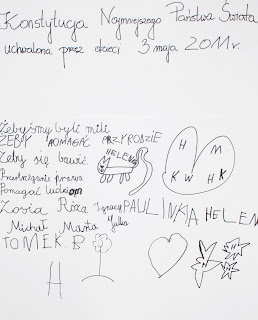 Konstytucja Najmniejszego Państwa Świata
uchwalona przez dzieci 3 maja 2011 r.
Żebyśmy byli mili
ŻEBY POMAGAĆ PRZYRODZIE
Żeby się bawić.
HELENA
H M
K W H K
Przestrzeganie prawa
Pomagać ludziom
Zosia Róża Ignacy PAULINKA HELENA
Michał Marta Julka
TOMEK B
H